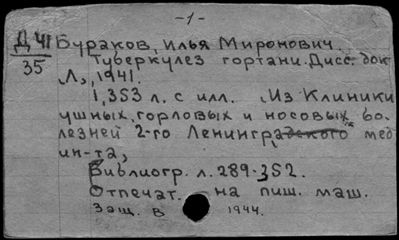 -1-
Д 41 Бураков, Илья Миронович.
35 Туберкулез гортани. Дисс. док
Л., 1941.
1,353 л. с илл. Из Клиники
ушных, горловых и носовых бо-
лезней 2-го Ленинградского мед
ин-та,
Библиогр. л. 289-352.
Отпечат. на пиш. маш.
Защ. в 1944.